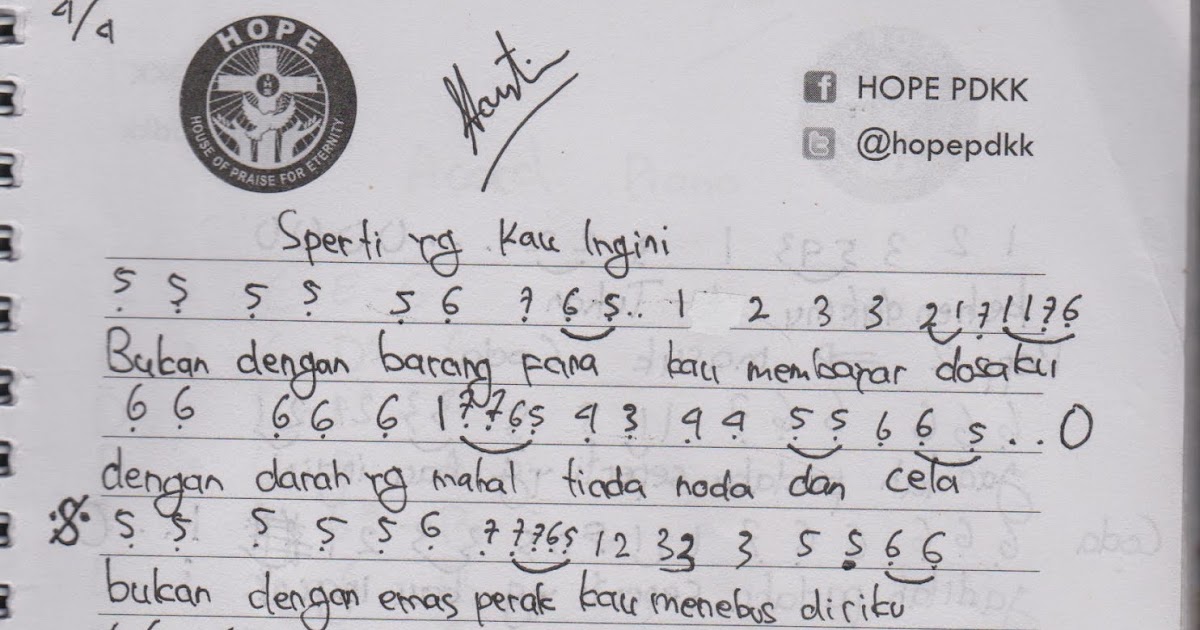 4/4
HOPE
HOUSE OF PRAISE FOR ETERNITY
HOPE PDKK
@hopepdkk
Sperti yg Kau Ingini
5 5 5 5 5 6 7 6 5 . . 1 2 3 3 2 1 7 1 1 7 6
Bukan dengan barang fana kau membayar dosaku
6 6 6 6 6 1 7 7 6 5 4 3 4 4 5 5 6 6 5 . . 0
dengan darah yg mahal tiada noda dan cela
5 5 5 5 5 6 7 7 7 6 5 1 2 3 3 3 5 5 6 6
bukan dengan emas perak kau menebus diriku
Coda